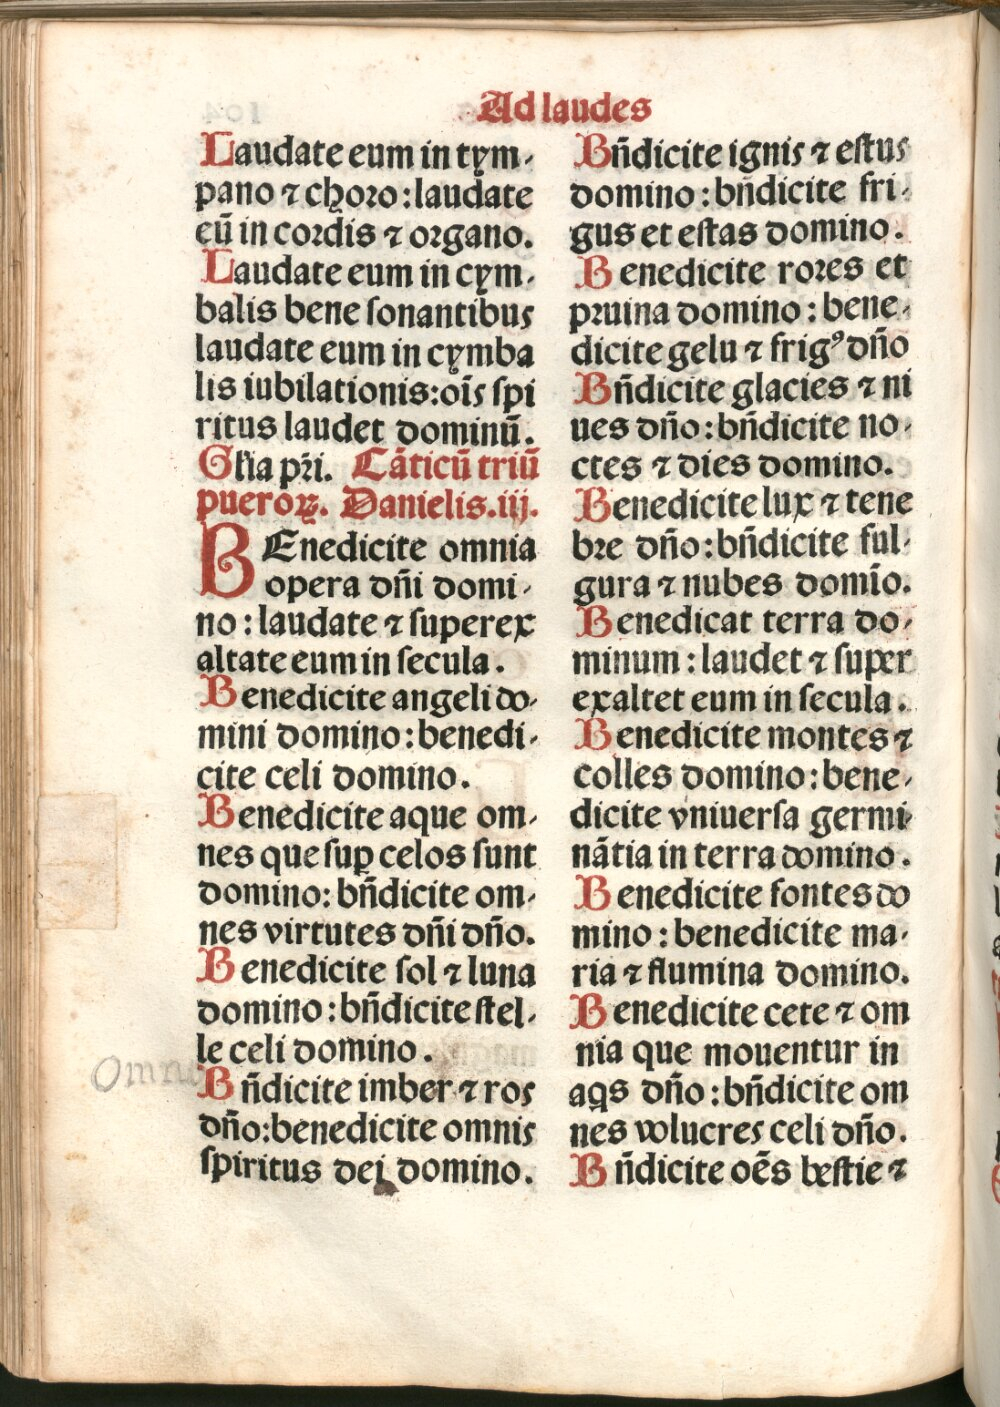 Ad laudes
Laudate eum in tym-
pano ⁊ choro: laudate
eū in cordis ⁊ organo.
Laudate eum in cym-
balis bene sonantibus
laudate eum in cymba
lis iubilationis: oīs spi
ritus laudet dominū.
Gl'ia pr̄i. Cāticū triū
pueroꝝ. Danielis.iij.
BEnedicite omnia
opera dn̄i domi-
no: laudate ⁊ superex
altate eum in secula.
Benedicite angeli do-
mini domino: benedi-
cite celi domino.
Benedicite aque om-
nes que suꝑ celos sunt
domino: bn̄dicite om-
nes virtutes dn̄i dn̄o.
Benedicite sol ⁊ luna
domino: bn̄dicite stel-
le celi domino.
Omn
Bn̄dicite imber ⁊ ros
dn̄o: benedicite omnis
spiritus dei domino.
Bn̄dicite ignis ⁊ estus
domino: bn̄dicite fri-
gus et estas domino.
Benedicite rores et
pruina domino: bene-
dicite gelu ⁊ frigꝰ dn̄o
Bn̄dicite glacies ⁊ ni
ues dn̄o: bn̄dicite no-
ctes ⁊ dies domino.
Benedicite lux ⁊ tene
bre dn̄o: bn̄dicite ful-
gura ⁊ nubes domīo.
Benedicat terra do-
minum: laudet ⁊ super
exaltet eum in secula.
Benedicite montes ⁊
colles domino: bene-
dicite vniuersa germi-
nātia in terra domino.
Benedicite fontes do
mino: benedicite ma-
ria ⁊ flumina domino.
Benedicite cete ⁊ om
nia que mouentur in
aqs dn̄o: bn̄dicite om
nes volucres celi dn̄o.
Bn̄dicite oēs bestie ⁊